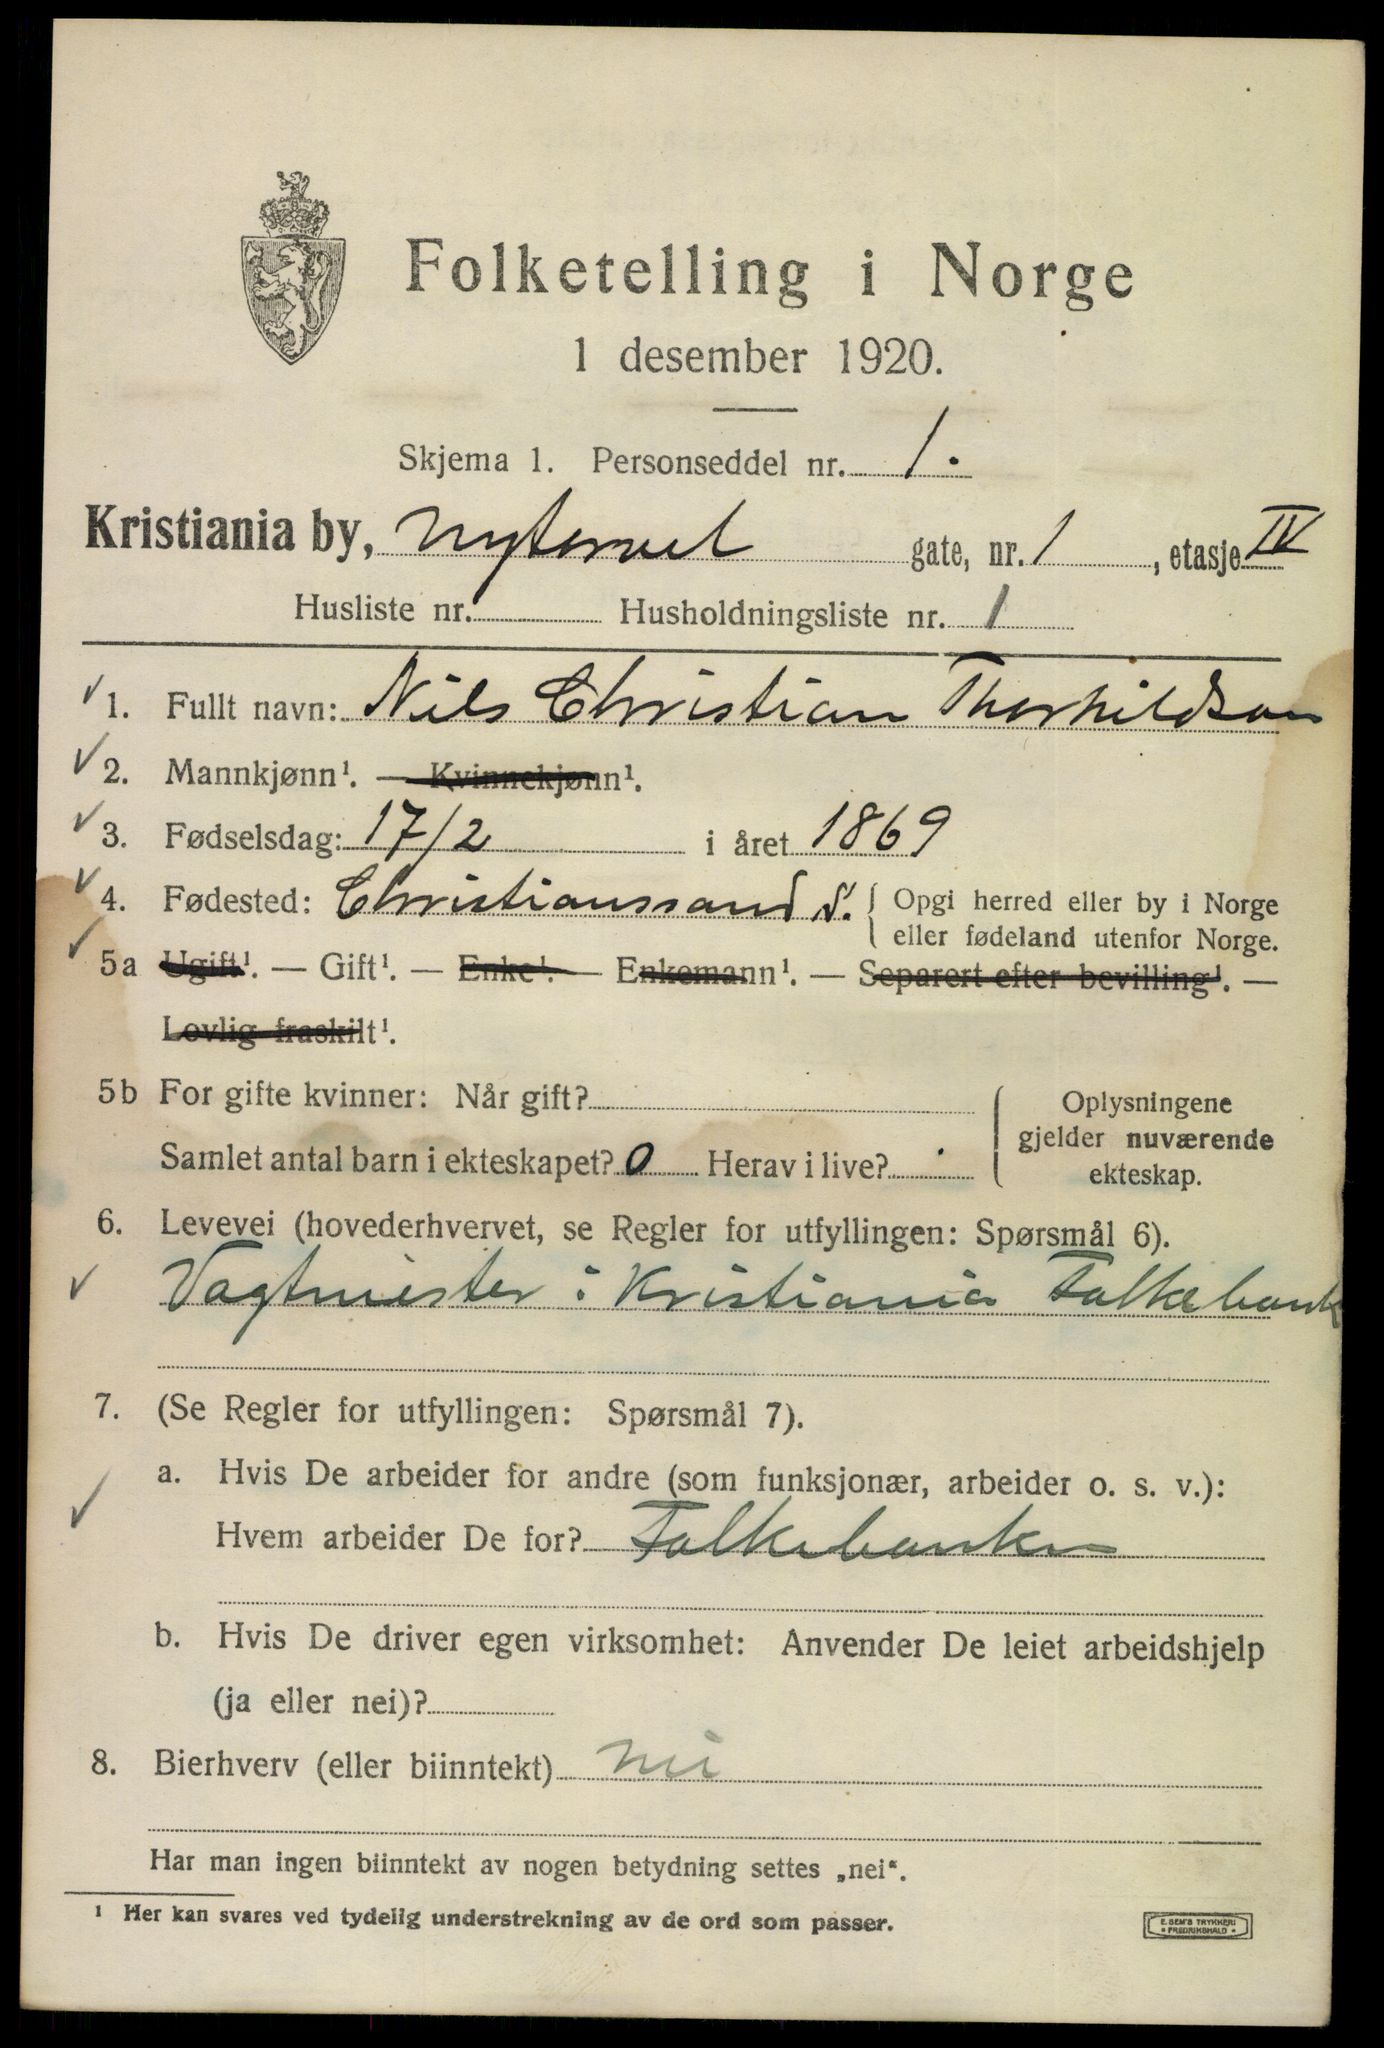 Folketelling i Norge
1 desember 1920.
Skjema 1. Personseddel nr. 1.
Kristiania by, Nytorvet gate, nr. 1, etasje IV
Husliste nr. Husholdningsliste nr. 1
1. Fullt navn: Nils Christian Thorkildsen
2. Mannkjønn¹. — Kvinnekjønn¹.
3. Fødselsdag: 17/2 i året 1869
4. Fødested: Christianssand S. Opgi herred eller by i Norge
eller fødeland utenfor Norge.
5a Ugift¹. — Gift¹. — Enke¹. — Enkemann¹. — Separert efter bevilling¹. —
Lovlig fraskilt¹.
5b For gifte kvinner: Når gift?
Samlet antal barn i ekteskapet? 0 Herav i live? .
Oplysningene
gjelder nuværende
ekteskap.
6. Levevei (hovederhvervet, se Regler for utfyllingen: Spørsmål 6).
Vagtmester i Kristiania Folkebank
7. (Se Regler for utfyllingen: Spørsmål 7).
a. Hvis De arbeider for andre (som funksjonær, arbeider o. s. v.):
Hvem arbeider De for? Folkebanken
b. Hvis De driver egen virksomhet: Anvender De leiet arbeidshjelp
(ja eller nei)?
8. Bierhverv (eller biinntekt) nei
Har man ingen biinntekt av nogen betydning settes „nei“.
¹ Her kan svares ved tydelig understrekning av de ord som passer.
E. SEM'S TRYKKERI
* FREDRIKSHALD *